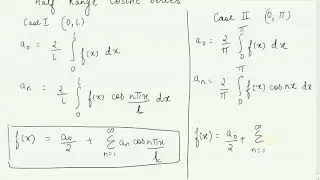 Half Range Cosine Series
Case I (0, L)
a₀ = 2/l ∫₀ˡ f(x) dx
aₙ = 2/l ∫₀ˡ f(x) cos nπx/l dx
f(x) = a₀/2 + Σₙ₌₁^∞ aₙ cos nπx/l
Case II (0, π)
a₀ = 2/π ∫₀^π f(x) dx
aₙ = 2/π ∫₀^π f(x) cos nx dx
f(x) = a₀/2 + Σₙ₌₁^∞